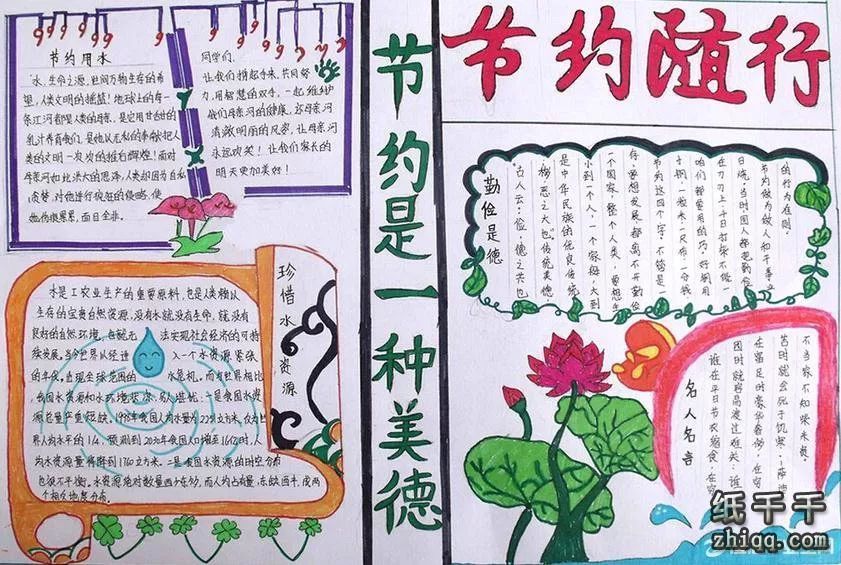 节约用水
水,生命之源,世间万物生存的希
望,人类文明的摇篮!地球上的每一
条江河都是人类的母亲,是它用甘甜的
乳汁养育我们,是她从无私的奉献把人
类的文明一次次的推向辉煌!面对
母亲河如此博大的恩泽,人类却因为自私
贪婪,对她进行疯狂的侵略,使
她伤痕累累,面目全非。
同学们,
让我们携起手来,共同努
力,用智慧的双手,一起维护
我们母亲河的健康,还母亲河
清澈明丽的风姿,让母亲河
永远欢笑!让我们家长的
明天更加美好!
珍惜水资源
水是工农业生产的重要原料,也是人类赖以
生存的宝贵自然资源,没有水就没有生命,就没有
良好的自然环境,也就无法实现社会经济的可持
续发展。当今世界从经进入一个水资源紧张
的年代,出现全球范围的水危机。而与世界相比
我国水资源和水环境状况,令人堪忧:一是我国水资
源总量严重短缺。1998年我国人均水量为2251立方米,仅为世
界人均水平的1/4。预测到2030年我国人口增至16亿时,人
均水资源量将降到1760立方米。二是我国水资源的时空分布
也很不平衡。水资源绝对数量西少东多,而人均占有量,东
个相久地是分布。
节约是一种美德
节约随行
勤俭是德
古人云:俭,德之共也
侈,恶之大也。传统美德,
是中华民族的优良传统
小到一个人,一个家庭,大到
一个国家,整个人类,要想生
存,要想发展,都离不开勤俭
节约这四个字,不管是一
寸钢一粒米、一尺布、一分钱
咱们都要用的巧,好钢用
在刀刃上,千日打柴不做一
日烧,当时国人都把勤俭
节约做为做人和干事业
的行为准则。
名人名言
不当家不知柴米贵。
苦时就会死于饥寒-萨迪
在富足时豪华奢侈,在穷
困时就将高渡过难关:谁
谁在平日节衣缩食,在穷
纸千千
zhiqq.com